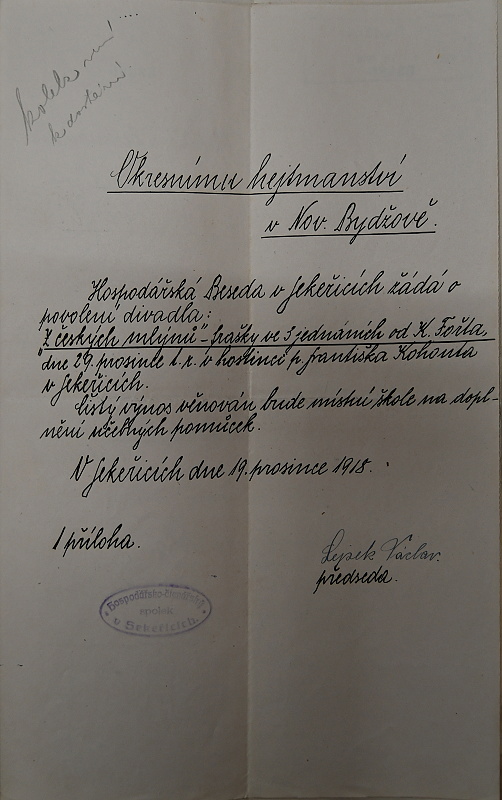 Okresnímu hejtmanství
v Nov. Bydžově.
Hospodářská Beseda v Sekeřicích žádá o
povolení divadla:
"Z českých mlýnů" - frašky ve 3 jednáních od K. Fořta,
dne 29. prosince t. r. v hostinci p. Františka Kohouta
v Sekeřicích.
Čistý výnos věnován bude místní škole na dopl-
nění učebných pomůcek.
V Sekeřicích dne 19. prosince 1918.
1 příloha.
Lejsek Václav.
předseda.
spolek
v Sekeřicích.